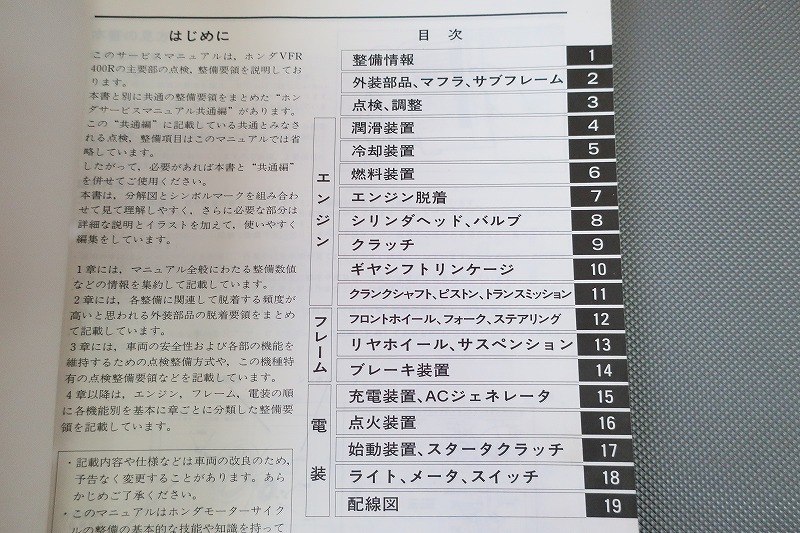 はじめに
このサービスマニュアルは、ホンダVFR
400Rの主要部の点検、整備要領を説明してお
ります。
本書と別に共通の整備要領をまとめた“ホン
ダサービスマニュアル共通編”があります。
この“共通編”に記載している共通とみなさ
れる点検、整備項目はこのマニュアルでは省
略しています。
したがって、必要があれば本書と“共通編”
を併せてご使用ください。
本書は、分解図とシンボルマークを組み合わ
せて見て理解しやすく、さらに必要な部分は
詳細な説明とイラストを加えて、使いやすく
編集をしています。
1章には、マニュアル全般にわたる整備数値
などの情報を集約して記載しています。
2章には、各整備に関連して脱着する頻度が
高いと思われる外装部品の脱着要領をまとめ
て記載しています。
3章には、車両の安全性および各部の機能を
維持するための点検整備方式や、この機種特
有の点検整備要領などを記載しています。
4章以降は、エンジン、フレーム、電装の順
に各機能別を基本に章ごとに分類した整備要
領を記載しています。
・記載内容や仕様などは車両の改良のため、
予告なく変更することがあります。あら
かじめご了承ください。
・このマニュアルはホンダモーターサイク
ルの整備の基本的な技能や知識を持って
目 次
整備情報 1
外装部品、マフラ、サブフレーム 2
点検、調整 3
エンジン
潤滑装置 4
冷却装置 5
燃料装置 6
エンジン脱着 7
シリンダヘッド、バルブ 8
クラッチ 9
ギヤシフトリンケージ 10
クランクシャフト、ピストン、トランスミッション 11
フレーム
フロントホイール、フォーク、ステアリング 12
リヤホイール、サスペンション 13
ブレーキ装置 14
電装
充電装置、ACジェネレータ 15
点火装置 16
始動装置、スタータクラッチ 17
ライト、メータ、スイッチ 18
配線図 19